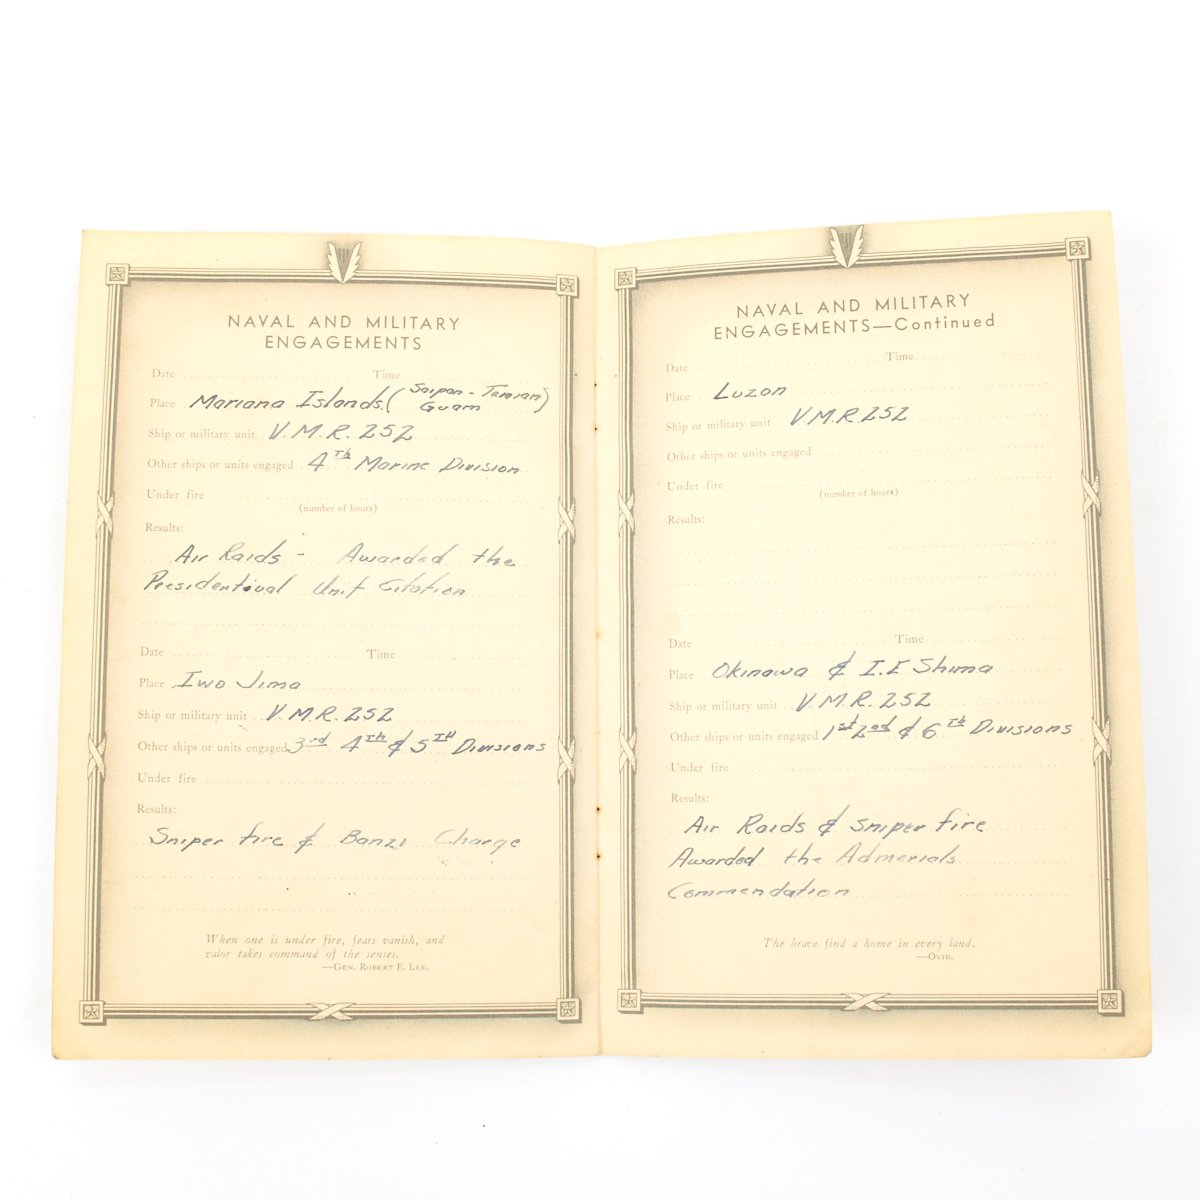 NAVAL AND MILITARY
ENGAGEMENTS
Date Time
Place Mariana Islands (Saipan - Tenian)
Guam
Ship or military unit V.M.R. 252
Other ships or units engaged 4th Marine Division
Under fire
(number of hours)
Results:
Air Raids - Awarded the
Presidentival Unit Citation
Date Time
Place Iwo Jima
Ship or military unit V.M.R. 252
Other ships or units engaged 3rd 4th & 5th Divisions
Under fire
Results:
Sniper fire & Banzi Charge
When one is under fire, fears vanish, and
valor takes command of the senses.
—Gen. Robert E. Lee.
NAVAL AND MILITARY
ENGAGEMENTS—Continued
Date Time
Place Luzon
Ship or military unit V.M.R. 252
Other ships or units engaged
Under fire
(number of hours)
Results:
Date Time
Place Okinawa & I.E Shima
Ship or military unit V.M.R. 252
Other ships or units engaged 1st 2nd & 6th Divisions
Under fire
Results:
Air Raids & sniper fire
Awarded the Admerials
Commendation
The brave find a home in every land.
—Ovid.